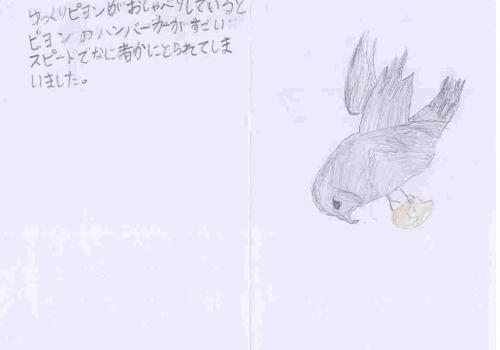 ゆっくりピヨンがおしゃべりしていると
ピヨンのハンバーガーがすごい
スピードでなに者かにとられてしま
いました。